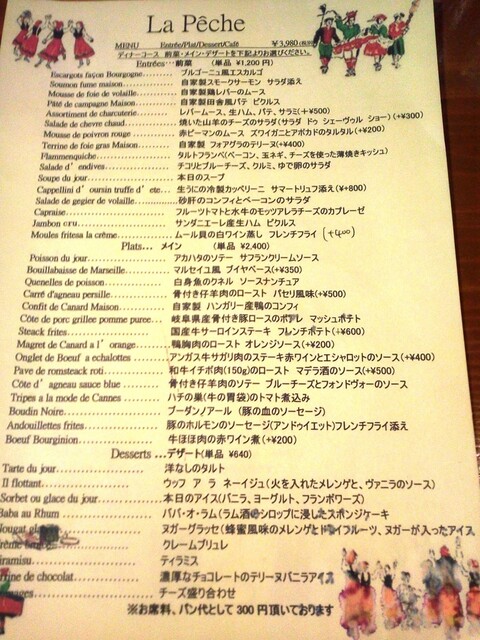 La Pêche
MENU Entrée/Plat/Dessert/Café ￥3,980(税別)
ディナーコース 前菜・メイン・デザートを下記よりお選びください。
Entrées…前菜 (単品 ￥1,200円)
Escargots façon Bourgogne……… ブルゴーニュ風エスカルゴ
Soumon fume maison……… 自家製スモークサーモン サラダ添え
Mousse de foie de volaille……… 自家製鶏レバーのムース
Pâté de campagne Maison……… 自家製田舎風パテ ピクルス
Assortiment de charcuterie……… レバームース、生ハム、パテ、サラミ(+￥500)
Salade de chevre chaud……… 焼いた山羊のチーズのサラダ(サラダ ドゥ シェーヴル ショー)(+￥300)
Mousse de poivron rouge……… 赤ピーマンのムース ズワイガニとアボカドのタルタル(+￥200)
Terrine de foie gras Maison……… 自家製 フォアグラのテリーヌ(+￥400)
Flammenquiche……… タルトフランベ(ベーコン、玉ネギ、チーズを使った薄焼きキッシュ)
Salade d'endives……… チコリとブルーチーズ、クルミ、ゆで卵のサラダ
Soupe du jour……… 本日のスープ
Cappellini d'oursin truffe d'ete… 生うにの冷製カッペリーニ サマートリュフ添え(￥+800)
Salade de gegier de volaille……… 砂肝のコンフィとベーコンのサラダ
Capraise……… フルーツトマトと水牛のモッツアレラチーズのカプレーゼ
Jambon cru……… サンダニエーレ産生ハム ピクルス
Moules fritesa la crème……… ムール貝の白ワイン蒸し フレンチフライ (+400)
Plats… メイン (単品 ￥2,400)
Poisson du jour……… アカハタのソテー サフランクリームソース
Bouillabaisse de Marseille……… マルセイユ風 ブイヤベース(+￥350)
Quenelles de poisson……… 白身魚のクネル ソースナンチュア
Carré d'agneau persille……… 骨付き仔羊肉のロースト パセリ風味(+￥500)
Confit de Canard Maison……… 自家製 ハンガリー産鴨のコンフィ
Côte de porc grillee pomme puree… 岐阜県産骨付き豚ロースのポワレ マッシュポテト
Steack frites……… 国産牛サーロインステーキ フレンチポテト(+￥600)
Magret de Canard a l'orange……… 鴨胸肉のロースト オレンジソース(+￥200)
Onglet de Boeuf a echalottes……… アンガス牛サガリ肉のステーキ赤ワインとエシャロットのソース(+￥400)
Pave de romsteck roti……… 和牛イチボ肉(150g)のロースト マデラ酒のソース(+￥500)
Côte d'agneau sauce blue……… 骨付き仔羊肉のソテー ブルーチーズとフォンドヴォーのソース
Tripes a la mode de Cannes……… ハチの巣(牛の胃袋)のトマト煮込み
Boudin Noire……… ブーダンノアール (豚の血のソーセージ)
Andouillettes frites……… 豚のホルモンのソーセージ(アンドゥイエット)フレンチフライ添え
Boeuf Bourginion……… 牛ほほ肉の赤ワイン煮(+￥200)
Desserts …デザート(単品 ￥640)
Tarte du jour……… 洋なしのタルト
Il flottant……… ウッフ ア ラ ネージュ(火を入れたメレンゲと、ヴァニラのソース)
Sorbet ou glace du jour……… 本日のアイス(バニラ、ヨーグルト、フランボワーズ)
Baba au Rhum……… ババ・オ・ラム(ラム酒のシロップに浸したスポンジケーキ
Nougat ……… ヌガーグラッセ(蜂蜜風味のメレンゲとドライフルーツ、ヌガーが入ったアイス
……… クレームブリュレ
iramisu……… ティラミス
de chocolat……… 濃厚なチョコレートのテリーヌバニラアイス
……… チーズ盛り合わせ
※お席料、パン代として300円頂いております